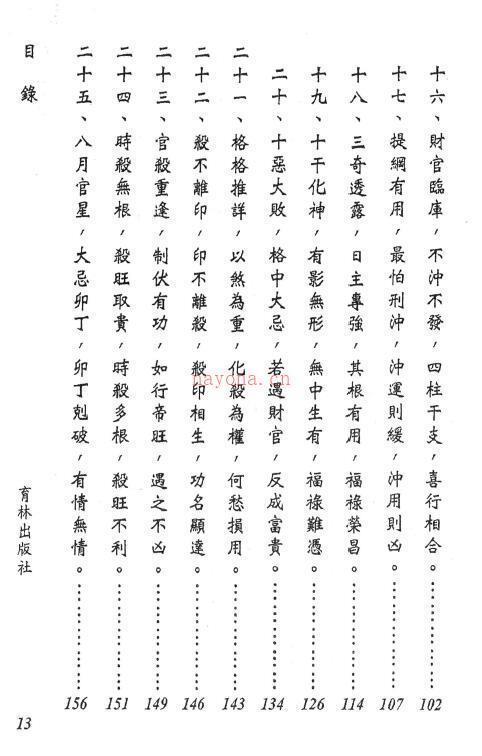 十六、財官臨庫，不沖不發，四柱干支，喜行相合。……………102
十七、提綱有用，最怕刑沖，沖運則緩，沖用則凶。……………107
十八、三奇透露，日主專強，其根有用，福祿榮昌。……………114
十九、十干化神，有影無形，無中生有，福祿難憑。……………126
二十、十惡大敗，格中大忌，若遇財官，反成富貴。……………134
二十一、格格推詳，以煞為重，化殺為權，何愁損用。……………143
二十二、殺不離印，印不離殺，殺印相生，功名顯達。……………146
二十三、官殺重逢，制伏有功，如行帝旺，遇之不凶。……………149
二十四、時殺無根，殺旺取貴，時殺多根，殺旺不利。……………151
二十五、八月官星，大忌卯丁，卯丁剋破，有情無情。……………156
目錄
育林出版社
13
nayona.cn